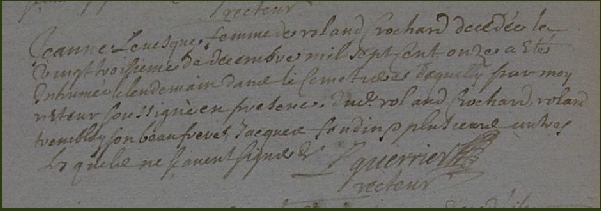 recteur
Jeanne Levesque femme de roland Rochard decedée le
vingt troisieme de decembre mil sept cent onze a eté
inhumee le lendemain dans le Cemetiere par moy
recteur soussigné en presence dud. roland Rochard, roland
tremblay son beaufrere, Jacques & plusieurs autres
lesquels ne scavent signer
guerrier
recteur